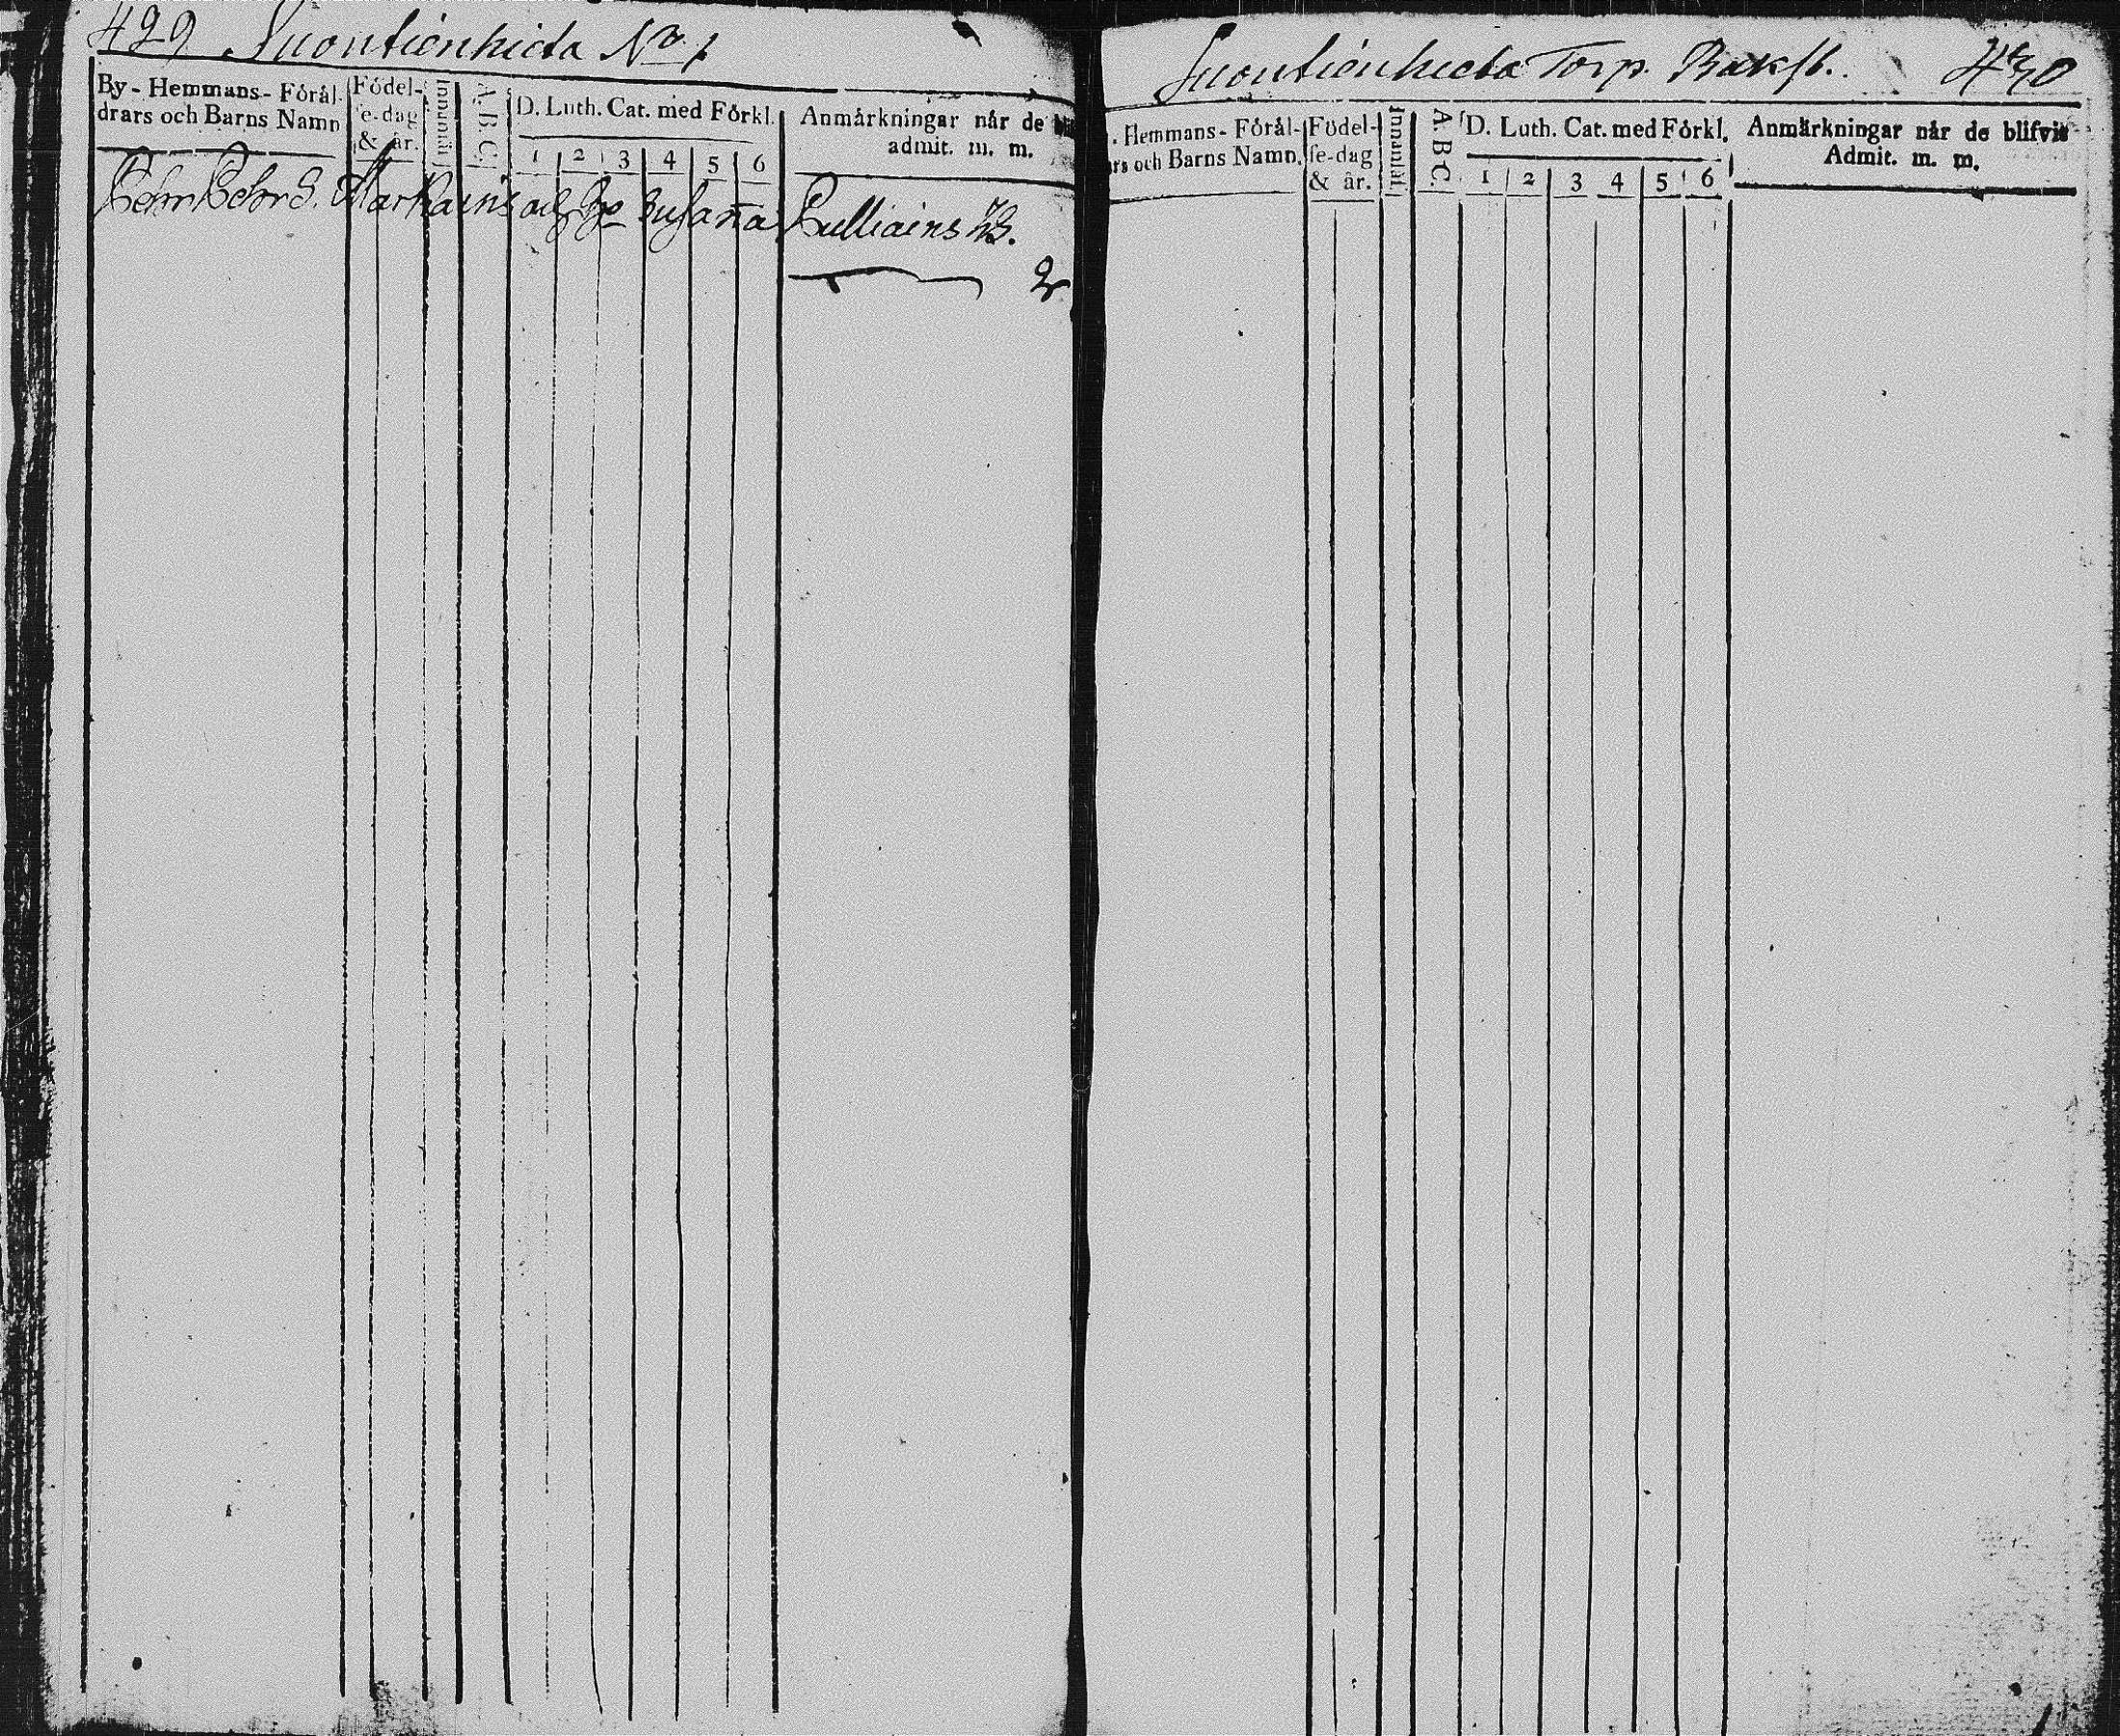 429 Suontienhieta No 1
By- Hemmans- Förål-
drars och Barns Namn
Födel-
se-dag
& år.
Innanläs
A. B. C.
D. Luth. Cat. med Förkl.
1 2 3 4 5 6
Anmärkningar når de
admit. m. m.
Pehr Pehrs. Markains och Susaña Pulliains
Suontienhieta Torp. Bakst. 430
Hemmans- Förål-
och Barns Namn.
Födel-
se-dag
& år.
Innanläs
A. B. C.
D. Luth. Cat. med Förkl.
1 2 3 4 5 6
Anmärkningar når de blifvit
Admit. m. m.